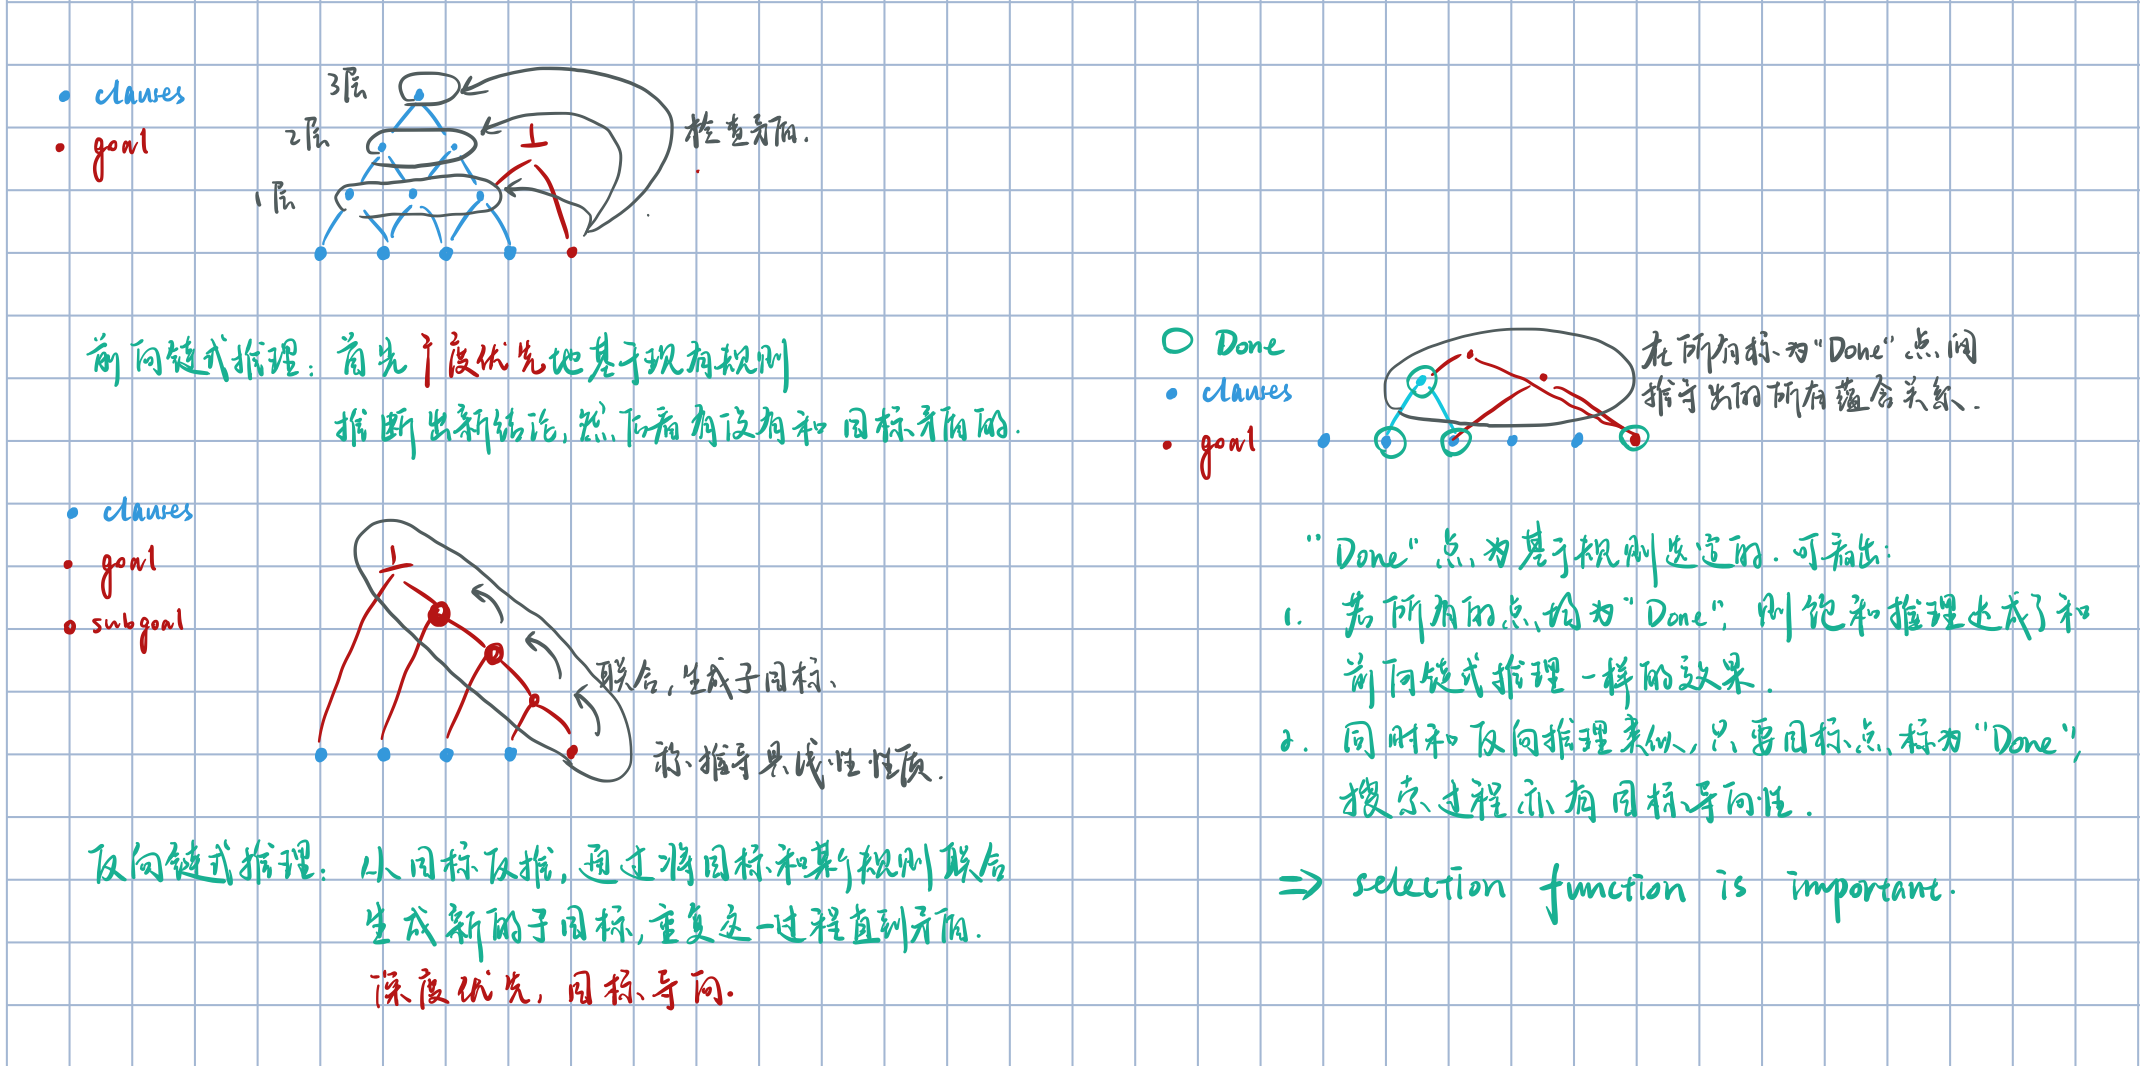 clauses
goal
3层
2层
1层
⊥
检查矛盾.
前向链式推理: 首先广度优先地基于现有规则
推断出新结论,然后看有没有和目标矛盾的.
clauses
goal
subgoal
⊥
联合,生成子目标、
称推导具线性性质.
反向链式推理: 从目标反推,通过将目标和某个规则联合
生成新的子目标,重复这一过程直到矛盾.
深度优先, 目标导向.
Done
clauses
goal
在所有标为"Done"点间
推导出的所有蕴含关系.
"Done"点为基于规则选定的.可看出:
1. 若所有的点均为"Done",则饱和推理达成了和
前向链式推理一样的效果.
2. 同时和反向推理类似,只要目标点标为"Done",
搜索过程亦有目标导向性.
⇒ selection function is important.